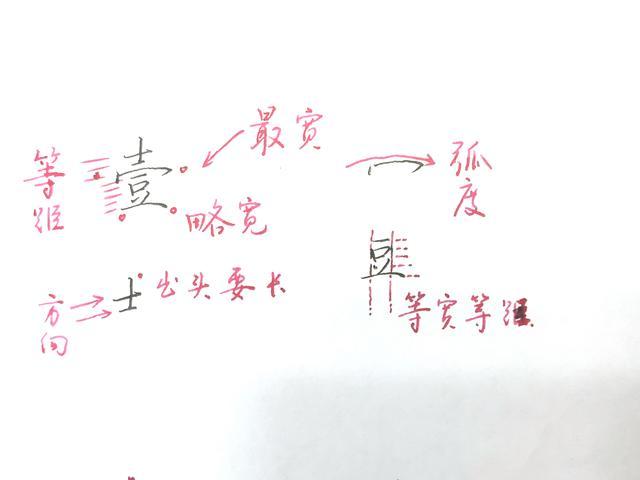 等距
壹
最宽
略宽
弧度
方向
士
出头要长
豆
等宽等距